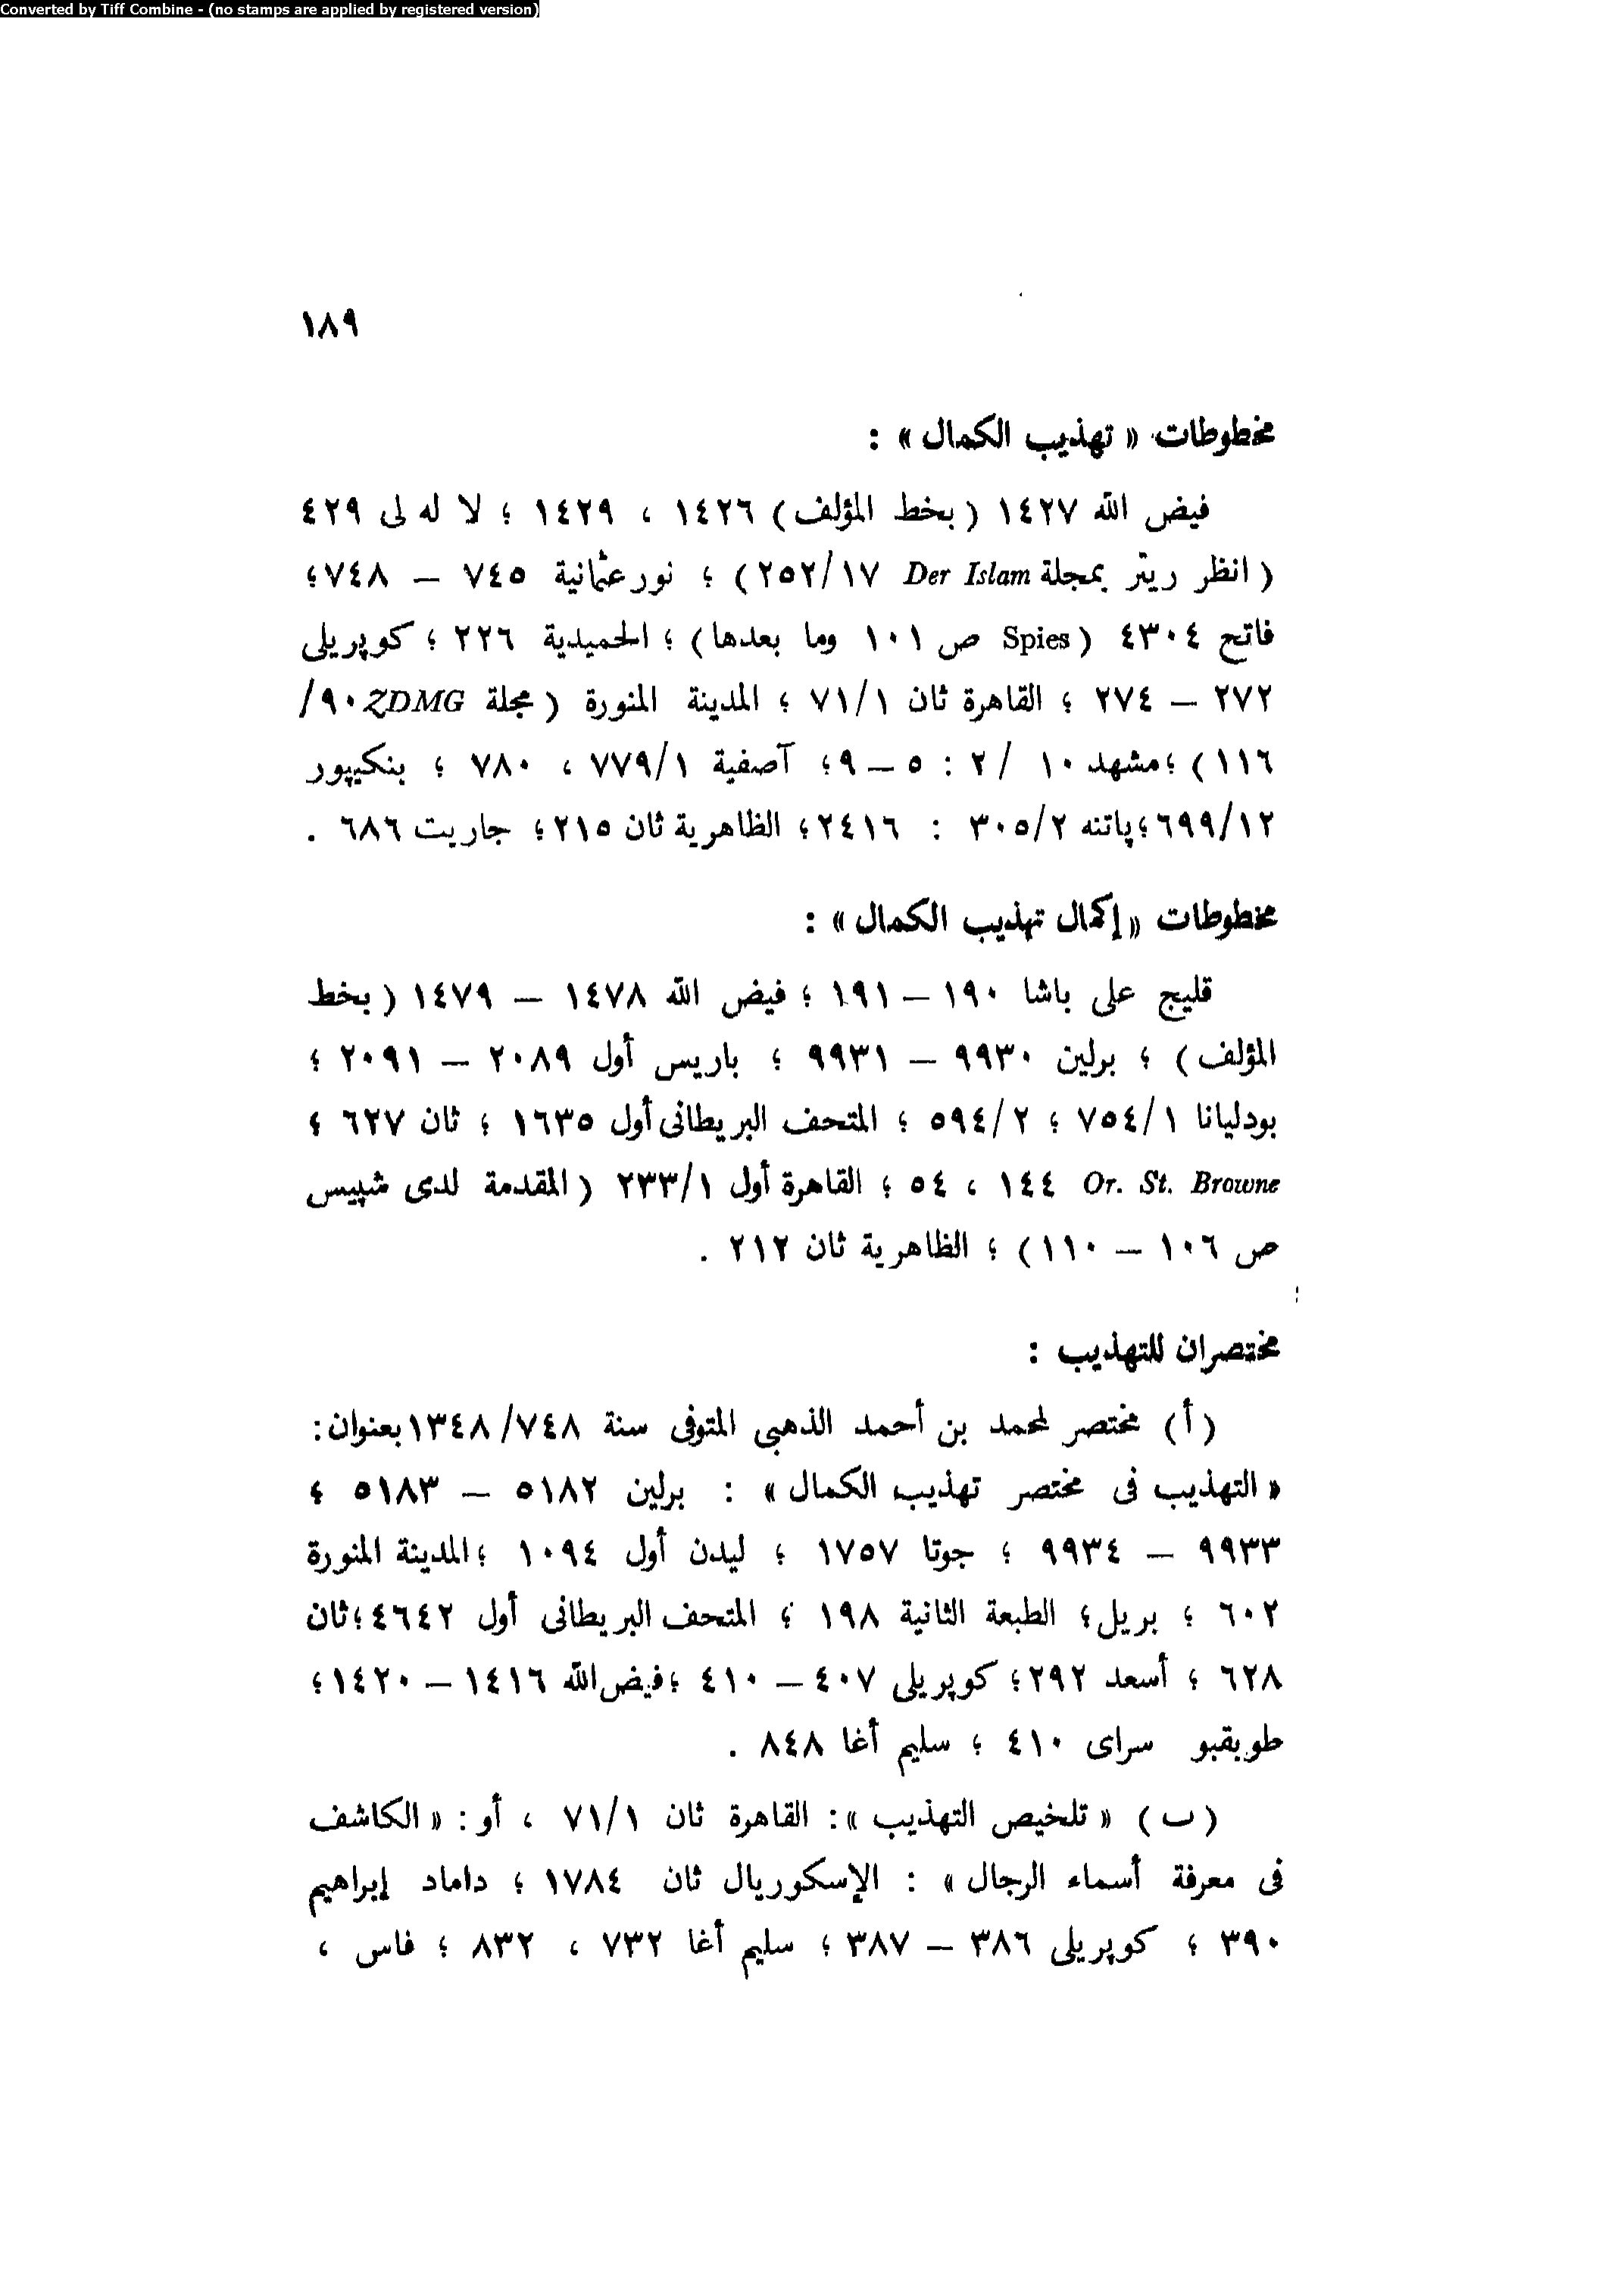 Converted by Tiff Combine - (no stamps are applied by registered version)
١٨٩
مخطوطات « تهذيب الكمال » :
فيض الله ١٤٢٧ ( بخط المؤلف ) ١٤٢٦ ، ١٤٢٩ ؛ لا له لى ٤٢٩
( انظر ريتر بمجلة Der Islam ٢٥٢/١٧ ) ؛ نور عثمانية ٧٤٥ – ٧٤٨؛
فاتح ٤٣٠٤ ( Spies ص ١٠١ وما بعدها ) ؛ الحميدية ٢٢٦ ؛ كوپريلى
٢٧٢ – ٢٧٤ ؛ القاهرة ثان ٧١/١ ؛ المدينة المنورة ( مجلة ZDMG ٩٠/
١١٦ ) ؛مشهد ١٠ / ٢ : ٥ – ٩؛ آصفية ٧٧٩/١ ، ٧٨٠ ؛ بنكيپور
٦٩٩/١٢ ؛پاتنه ٣٠٥/٢ : ٢٤١٦؛ الظاهرية ثان ٢١٥؛ جاريت ٦٨٦ .
مخطوطات « إكمال تهذيب الكمال » :
قليج على باشا ١٩٠ – ١٩١ ؛ فيض الله ١٤٧٨ – ١٤٧٩ ( بخط
المؤلف ) ؛ برلين ٩٩٣٠ – ٩٩٣١ ؛ باريس أول ٢٠٨٩ – ٢٠٩١ ؛
بودليانا ٧٥٤/١ ؛ ٥٩٤/٢ ؛ المتحف البريطانى أول ١٦٣٥ ؛ ثان ٦٢٧ ؛
Or. St. Browne ١٤٤ ، ٥٤ ؛ القاهرة أول ٢٣٣/١ ( المقدمة لدى شپيس
ص ١٠٦ – ١١٠ ) ؛ الظاهرية ثان ٢١٢ .
مختصران للتهذيب :
( أ ) مختصر لمحمد بن أحمد الذهبى المتوفى سنة ٧٤٨/ ١٣٤٨بعنوان:
« التهذيب فى مختصر تهذيب الكمال » : برلين ٥١٨٢ – ٥١٨٣ ؛
٩٩٣٣ – ٩٩٣٤ ؛ جوتا ١٧٥٧ ؛ ليدن أول ١٠٩٤ ؛المدينة المنورة
٦٠٢ ؛ بريل؛ الطبعة الثانية ١٩٨ ؛ المتحف البريطانى أول ٤٦٤٢؛ثان
٦٢٨ ؛ أسعد ٢٩٢؛ كوپريلى ٤٠٧ – ٤١٠ ؛فيض الله ١٤١٦ – ١٤٢٠؛
طوبقبو سراى ٤١٠ ؛ سليم أغا ٨٤٨ .
( ب ) « تلخيص التهذيب »: القاهرة ثان ٧١/١ ، أو : « الكاشف
فى معرفة أسماء الرجال » : الإسكوريال ثان ١٧٨٤ ؛ داماد إبراهيم
٣٩٠ ؛ كوپريلى ٣٨٦ – ٣٨٧ ؛ سليم أغا ٧٣٢ ، ٨٣٢ ؛ فاس ،